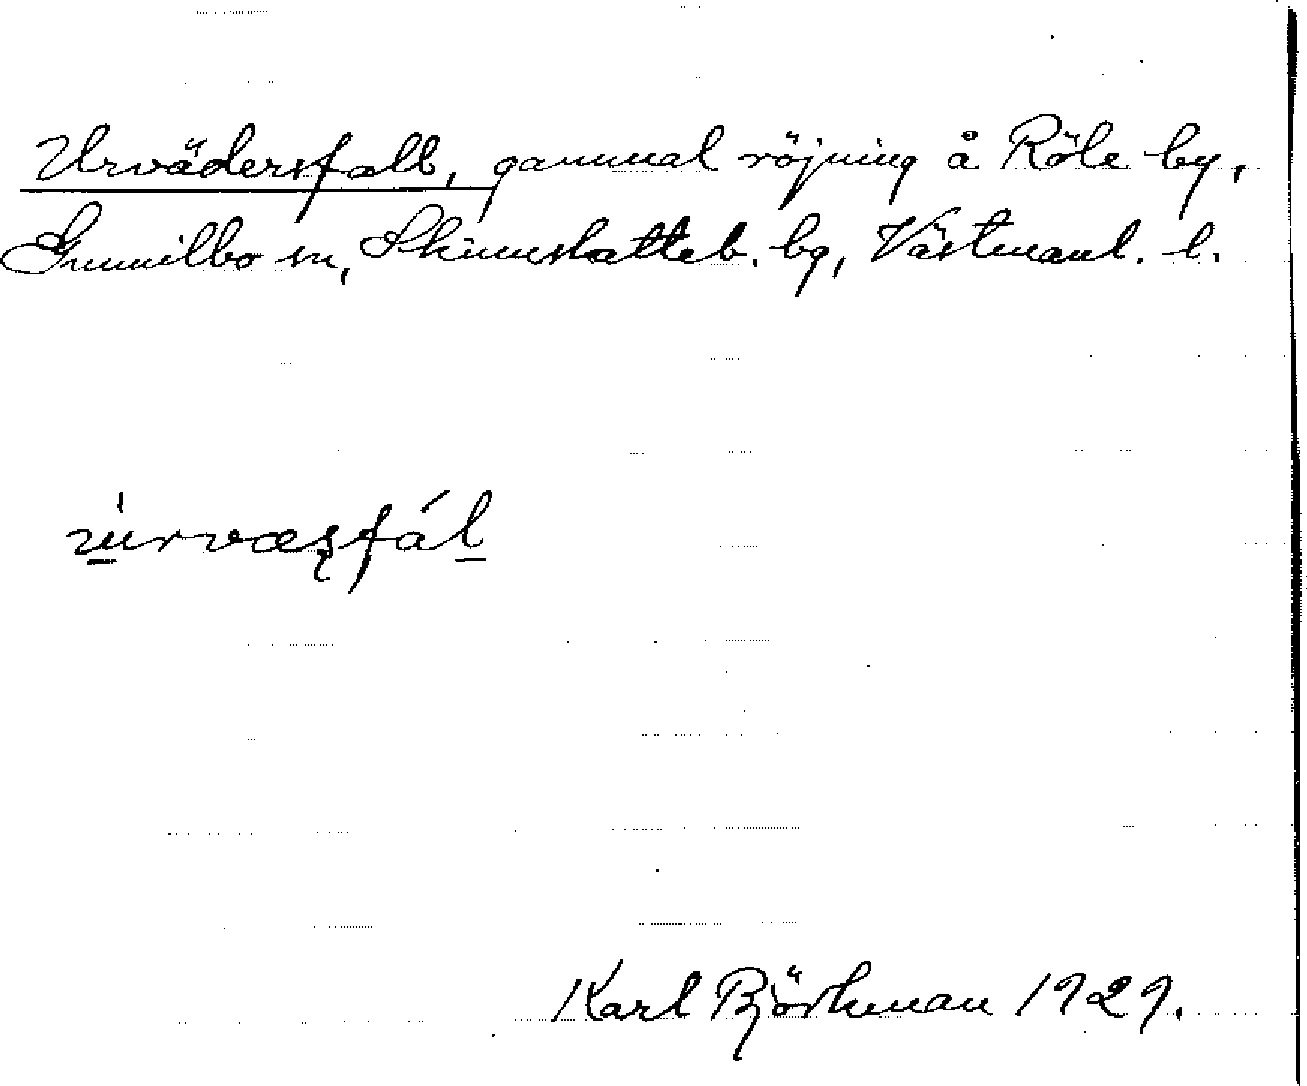 Urvädersfall, gammal röjning å Röle by,
Gunnilbo sn, Skinnskatteb. bg, Västmanl. l.
u̲rvæʂfál̲
Karl Björkman 1929.